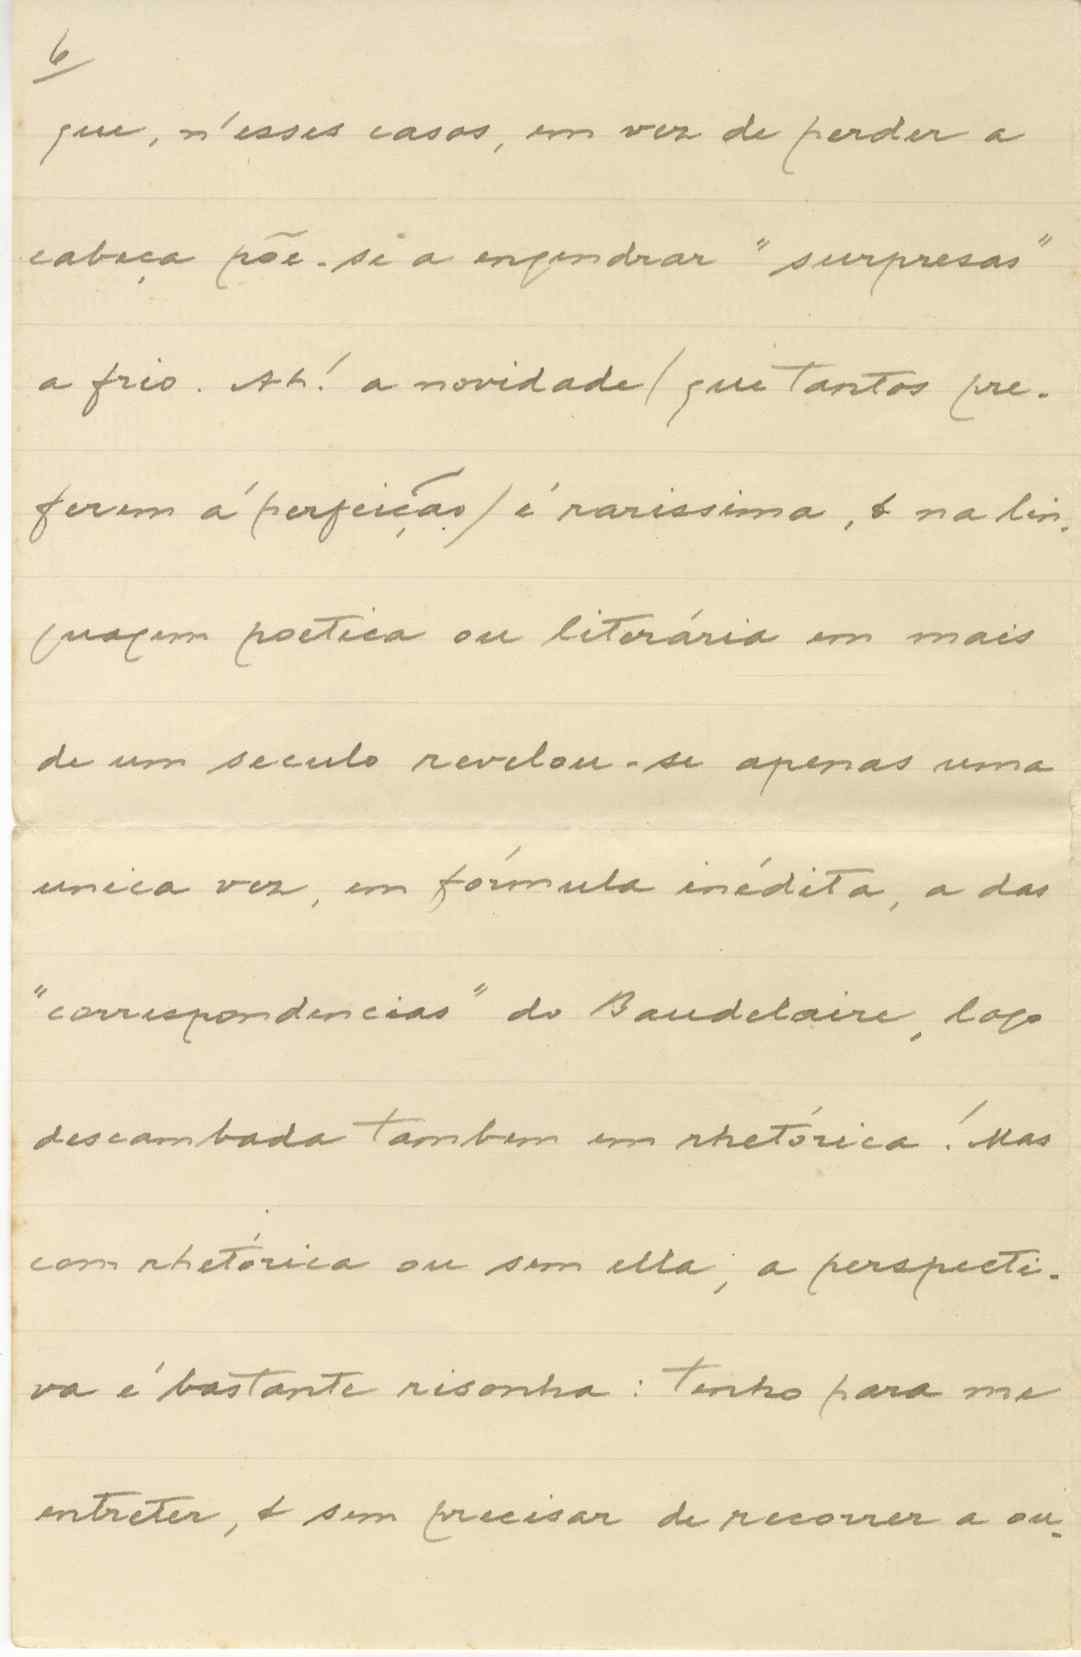 6
que, n'esses casos, em vez de perder a
cabeça põe-se a engendrar "surpresas"
a frio. Ah! a novidade / que tantos pre-
ferem á perfeição / é rarissima, & na lin-
guagem poetica ou literária em mais
de um seculo revelou-se apenas uma
unica vez, em fórmula inédita, a das
"correspondencias" do Baudelaire, logo
descambada tambem em rhetórica! Mas
com rhetórica ou sem ella, a perspecti-
va é bastante risonha: tenho para me
entreter, & sem precisar de recorrer a ou-